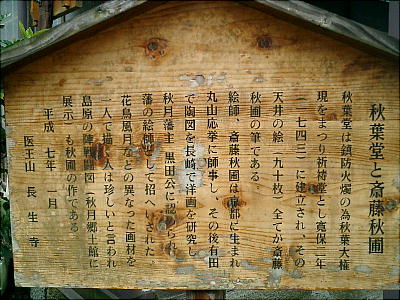 秋葉堂と斎藤秋圃
秋葉堂は鎮防火燭の為秋葉大権
現をまつり祈祷堂とし寛保三年
（一七四三）に建立され、その
天井の絵（九十枚）全てが斎藤
秋圃の筆である
絵師、斎藤秋圃は京都に生まれ
丸山応挙に師事し、その後有田
で陶図を長崎で洋画を研究し
秋月藩主 黒田公に認められ
藩の絵師として招へいされた
花鳥風月などの異なった画材を
一人で描く人は珍しいと言われ
島原の陣屏風図（秋月郷土館に
展示）も秋圃の作である
平成 七年 一月
医王山 長生寺